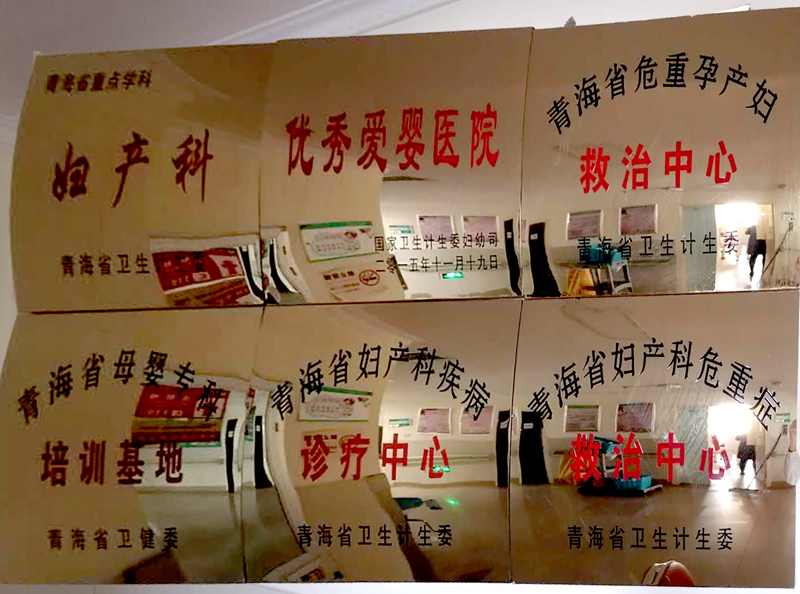 青海省重点学科
妇产科
青海省卫生
优秀爱婴医院
国家卫生计生委妇幼司
二零一五年十一月十九日
青海省危重孕产妇
救治中心
青海省卫生计生委
青海省母婴专科
培训基地
青海省卫健委
青海省妇产科疾病
诊疗中心
青海省卫生计生委
青海省妇产科危重症
救治中心
青海省卫生计生委